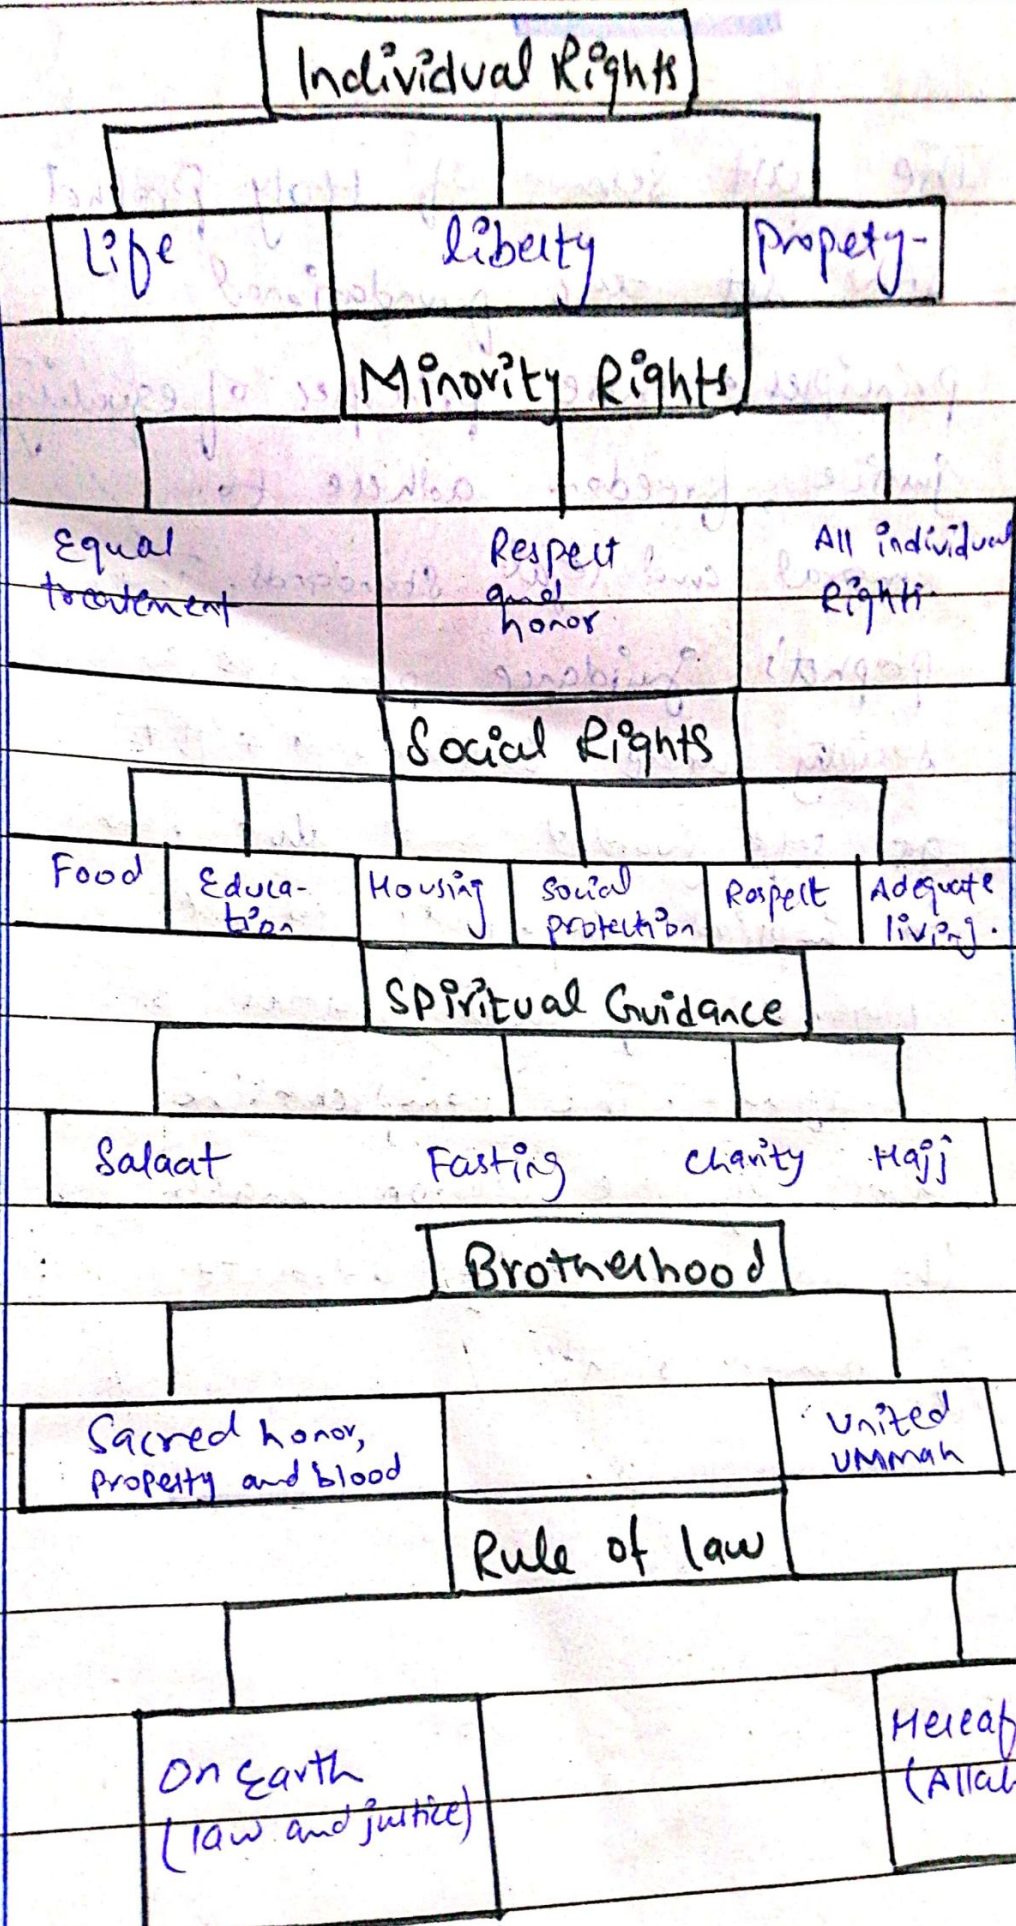 Individual Rights
Life liberty Propety-
Minority Rights
Equal
treatement
Respect
and
honor
All individual
Rights.
Social Rights
Food
Educa-
tion
Housing
Social
protection
Respect
Adequate
living.
Spiritual Guidance
Salaat Fasting Charity Hajj
Brotherhood
Sacred honor,
Property and blood
United
Ummah
Rule of law
On Earth
(law and justice)
Hereaf
(Allah